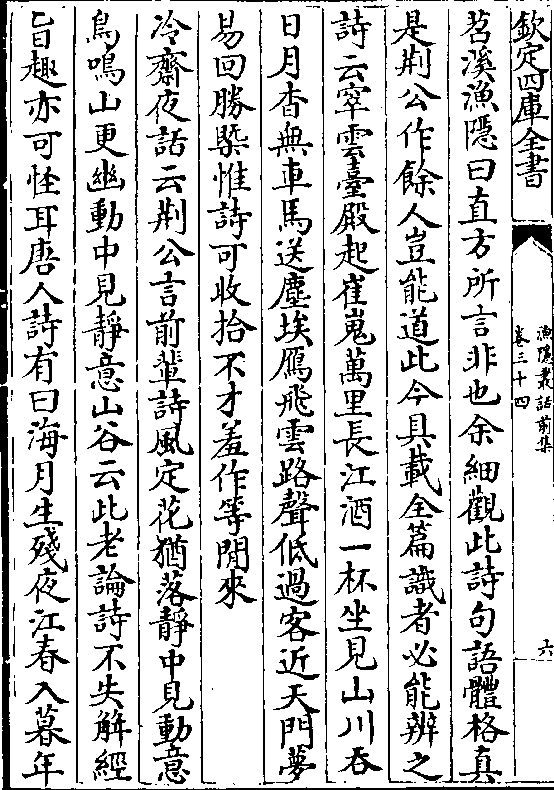 欽定四庫全書
漁隱叢話前集
卷三十四
六
苕溪漁隱曰直方所言非也余細觀此詩句語體格真
是荆公作餘人豈能道此今具載全篇識者必能辨之
詩云寥雲臺殿起崔嵬萬里長江酒一杯坐見山川吞
日月杳無車馬送塵埃鴈飛雲路聲低過客近天門夢
易回勝槩惟詩可收拾不才羞作等閒來
冷齋夜話云荆公言前輩詩風定花猶落静中見動意
鳥鳴山更幽動中見靜意山谷云此老論詩不失解經
旨趣亦可怪耳唐人詩有曰海月生殘夜江春入暮年